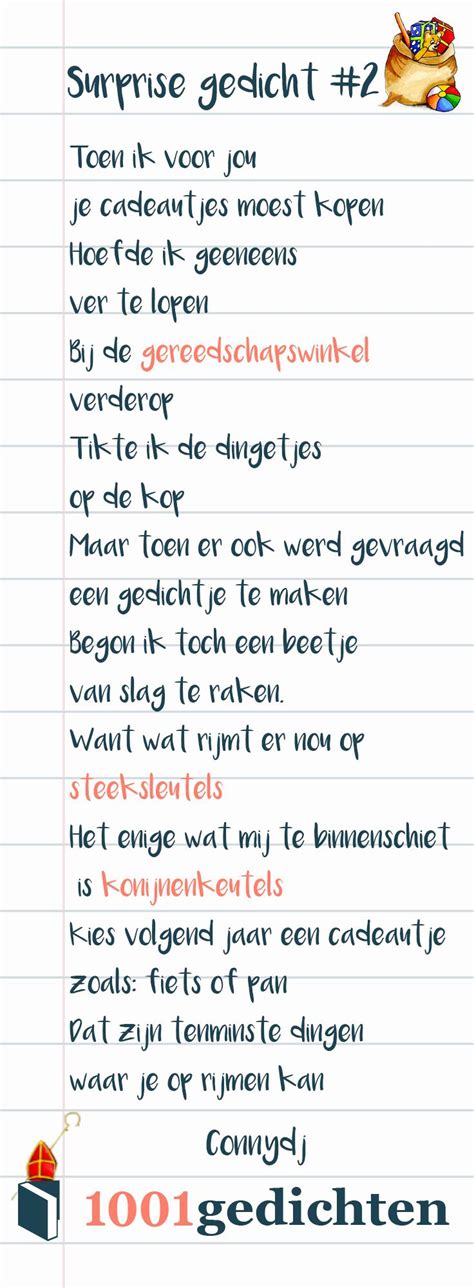 Surprise gedicht #2
Toen ik voor jou
je cadeautjes moest kopen
Hoefde ik geeneens
ver te lopen
Bij de gereedschapswinkel
verderop
Tikte ik de dingetjes
op de kop
Maar toen er ook werd gevraagd
een gedichtje te maken
Begon ik toch een beetje
van slag te raken.
Want wat rijmt er nou op
steeksleutels
Het enige wat mij te binnenschiet
is konijnenkeutels
Kies volgend jaar een cadeautje
zoals: fiets of pan
Dat zijn tenminste dingen
waar je op rijmen kan
Connydj
1001gedichten